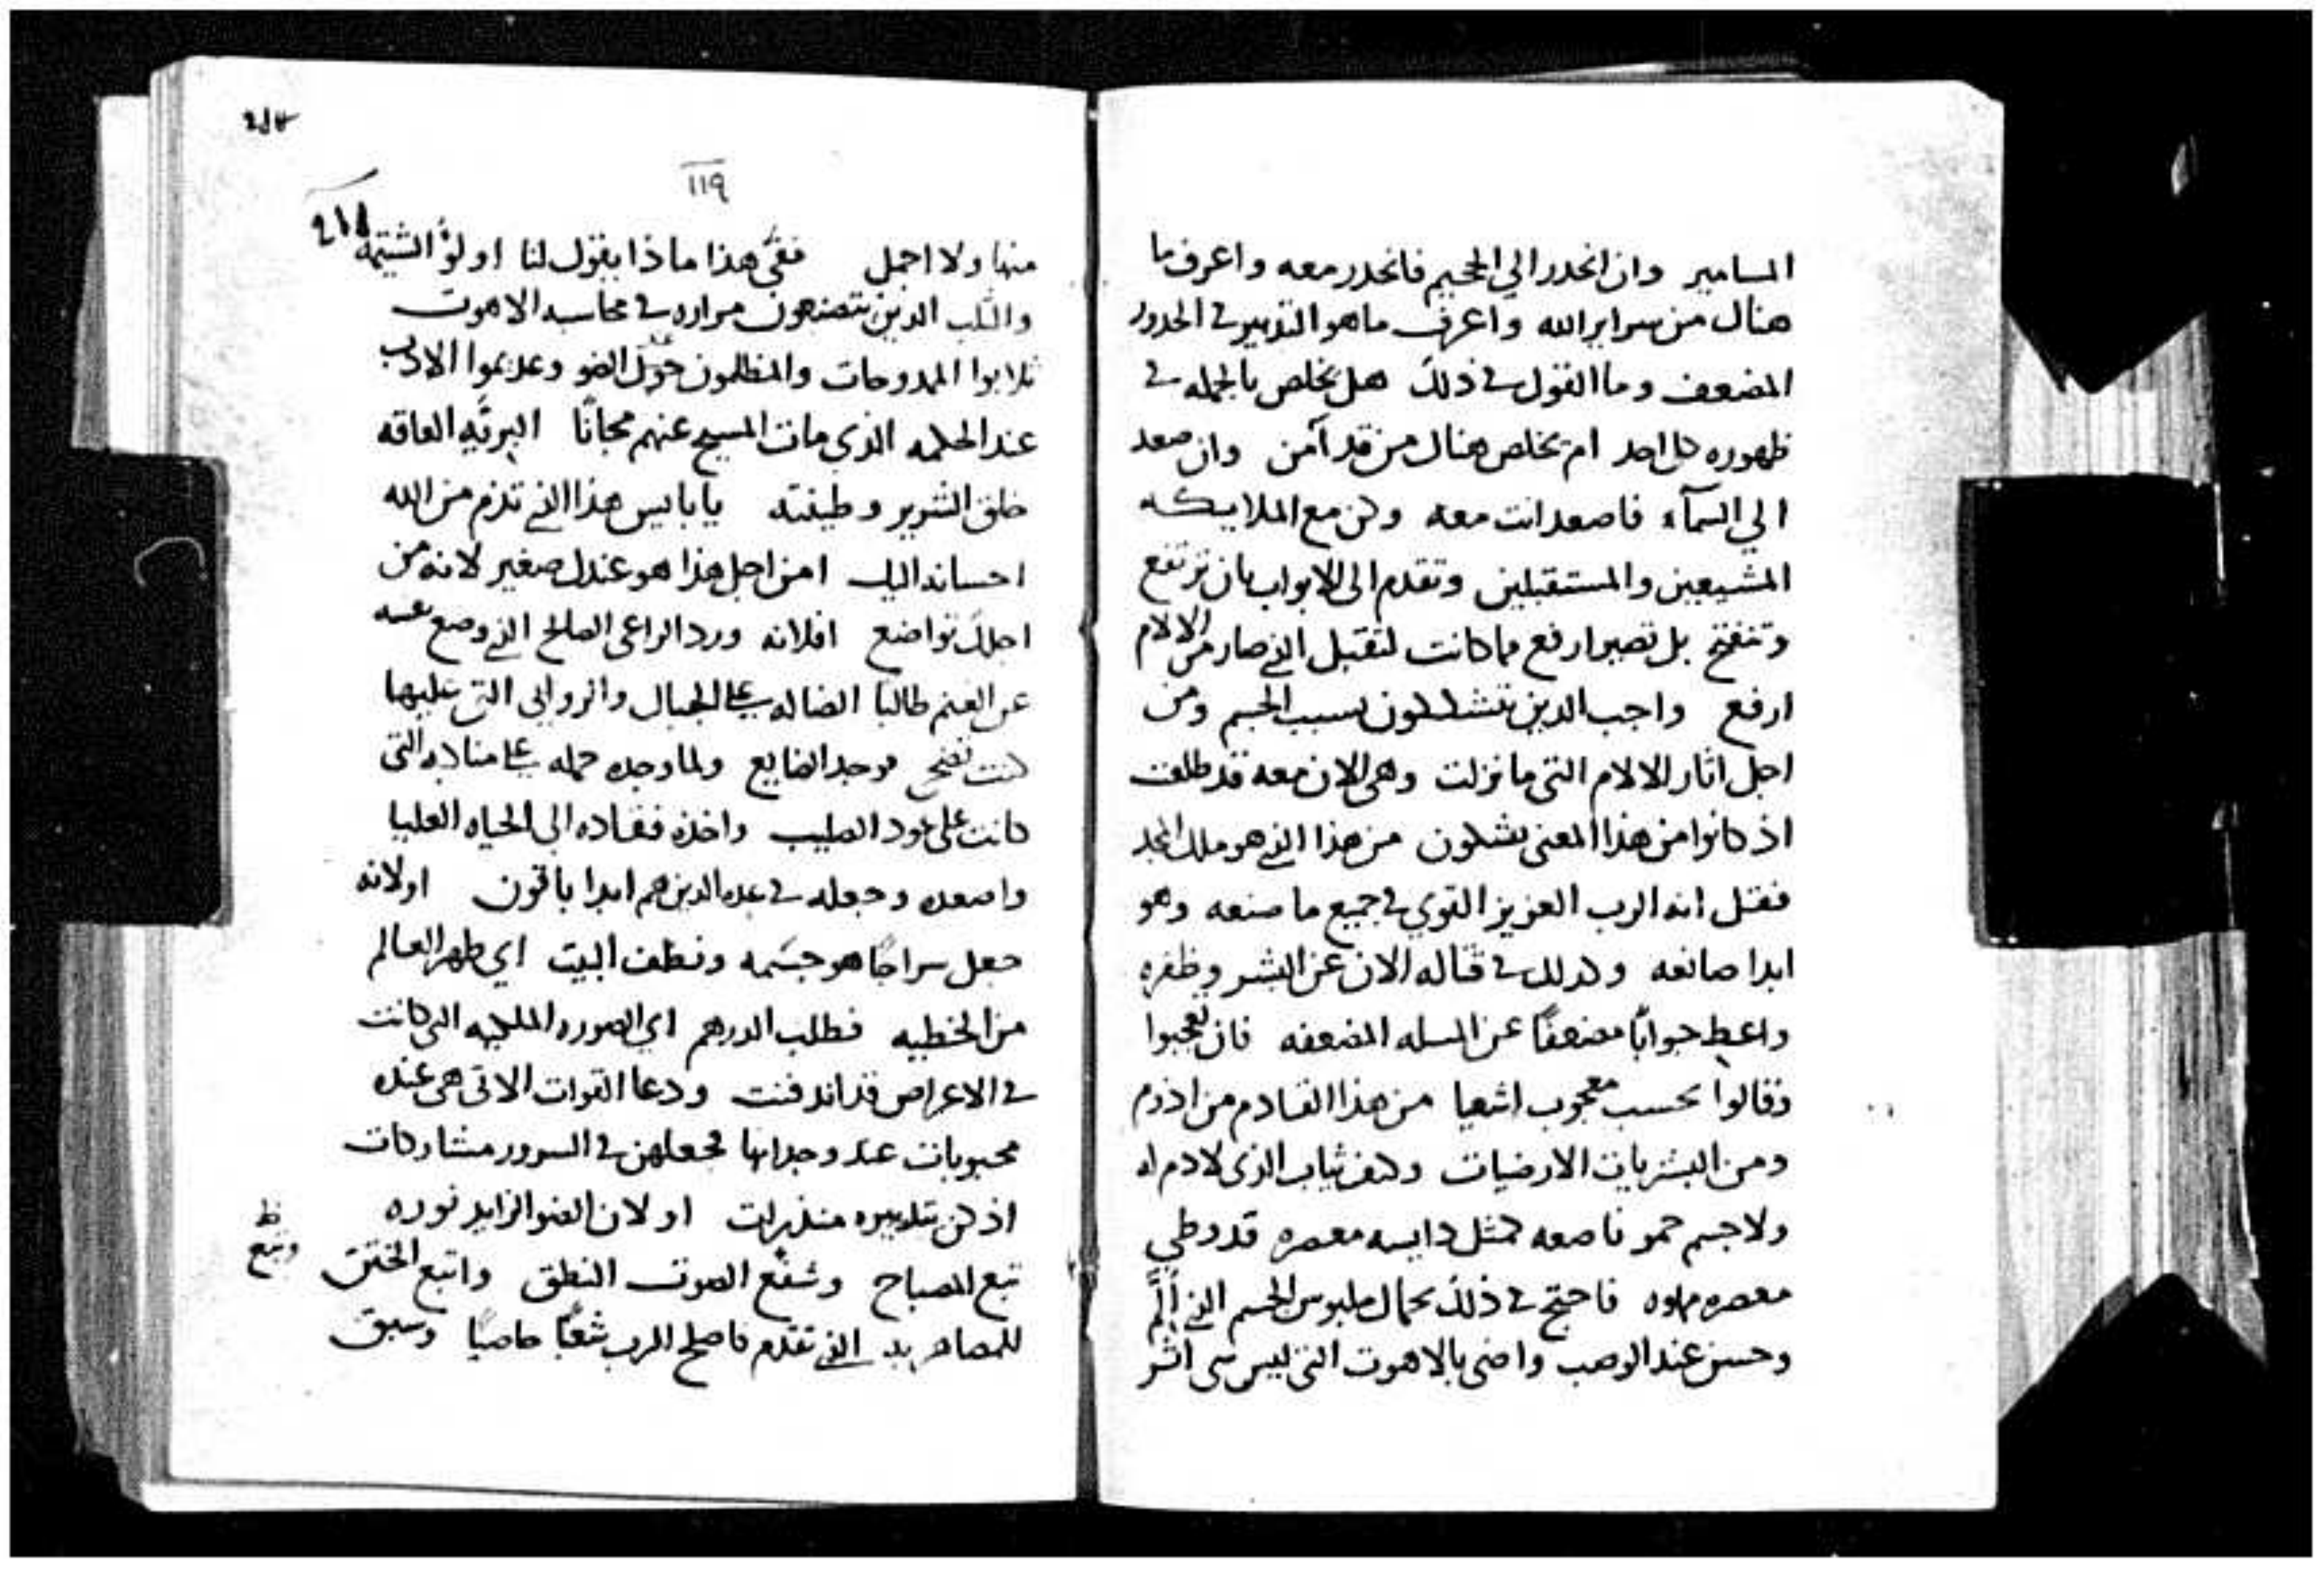 المسامير وان انحدر الي الجحيم فانحدر معه واعرف ما
هناك من سراير الله واعرف ما هو التدبير في الحدور
المضعف وما القول في ذلك هل يخلص بالجمله في
ظهوره كل احد ام يخلص هناك من قد آمن وان صعد
الي السمآء فاصعد انت معه وكن مع الملايكه
المشيعين والمستقبلين وتقدم الى الابواب بان ترتفع
وتنفتح بل تصير ارفع مما كانت لتقبل الذي صار من الالام
ارفع واجب الذين يتشككون بسبب الجسم ومن
اجل اثار الالام التي ما نزلت وهي الان معه قد طلعت
اذ كانوا من هذا المعنى يشكون من هذا الذي هو ملك المجد
فقل انه الرب العزيز القوي في جميع ما صنعه وهو
ابدا صانعه وكذلك في قتاله الان عن البشر وظفره
واعط جوابًا مضعفًا عن المسله المضعفه فان تعجبوا
وقالوا بحسب معجوب اشعيا من هذا القادم من اذوم
ومن البشريات الارضيات وكيف ثياب الذي لا دم له
ولا جسم حمر ناصعه كمثل دايسه معصره قد وطي
معصره مملوه فاحتج في ذلك بجمال ملبوس الجسم الذي ألم
وحسن عند الوصب واضى بالاهوت الذي ليس شي اثر
١١٩
منها ولا اجمل ففي هذا ماذا يقول لنا اولو الشتيمه
والثلب الذين يتصفحون مراره في محاسبه الاهوت
ثلابوا الممدوحات والمظلمون حول الضو وعديموا الادب
عند الحكمه الذي مات المسيح عنهم مجانًا البريّه العاقه
خلق الشرير وطيفته يا بايس هذا الذي تذم من الله
احسانه اليك امن اجل هذا هو عندك صغير لانه من
اجلك تواضع افلانه ورد الراعي الصالح الذي وضع نفسه
عن الغنم طالبًا الضاله على الجبال والروابي التي عليها
كنت تضحي فوجد الضايع ولما وجده حمله على مناكبه التي
كانت على عود الصليب واخذه فقاده الى الحياه العليا
واصعده وجعله في عده الذين هم ابدا باقون اولانه
جعل سراجًا هو جسمه ونظف البيت اي طهر العالم
من الخطيه فطلب الدرهم اي الصوره الملكيه التي كانت
في الاعراض قد اندفنت ودعا القوات الاتى هي عنده
محبوبات عند وجدانها فجعلهن في السرور مشاركات
اذ كن بتدبيره منذرات او لان الضو الزايد نوره
تبع المصباح وشفع الصوت النطق واتبع الختن
الذي تقدم فاصلح الرب شعبًا خاصيًا وسبق